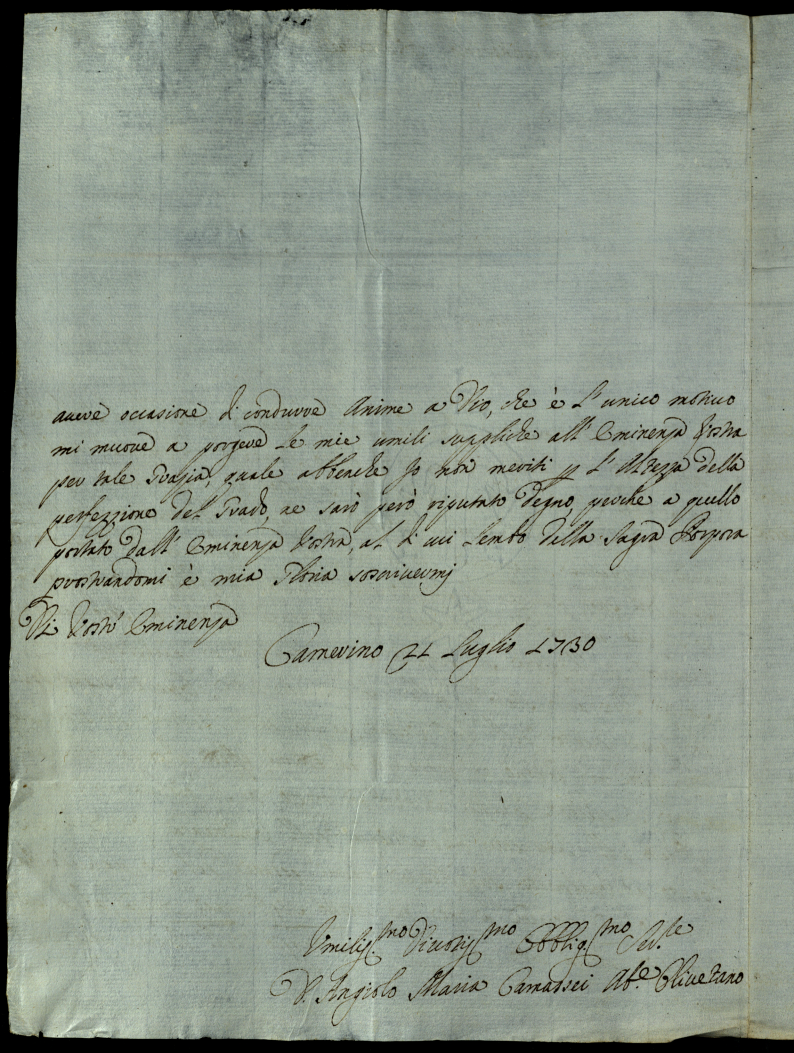 avere occasione di condurre Anime a Dio, che è l'unico motivo
mi muove a porgere le mie umili suppliche all' Eminenza Vostra
per tale Grazia, quale abbenche Io non meriti p l' Altezza della
perfezzione del Grado, ne sarò però riputato degno, perche a quello
portato dall' Eminenza Vostra, al di cui lembo della Sagra Porpora
prostrandomi è mia Gloria soscrivermj
Di Vostr' Eminenza
Camerino 21 Luglio 1730
Umiliss.mo Divotiss.mo Obblig.mo Se.re
D. Angiolo Maria Camassei Ab.e Olivetano